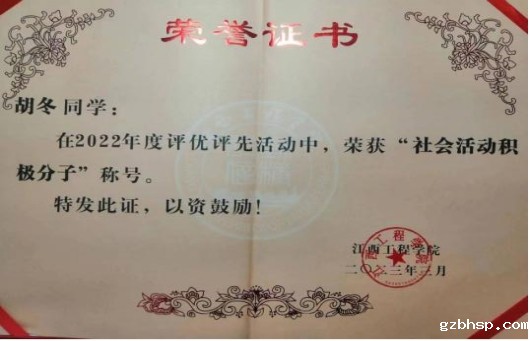 荣誉证书
胡冬同学：
在2022年度评优评先活动中，荣获“社会活动积
极分子”称号。
特发此证，以资鼓励！
江西工程学院
二〇二三年三月
gzbhsp.com